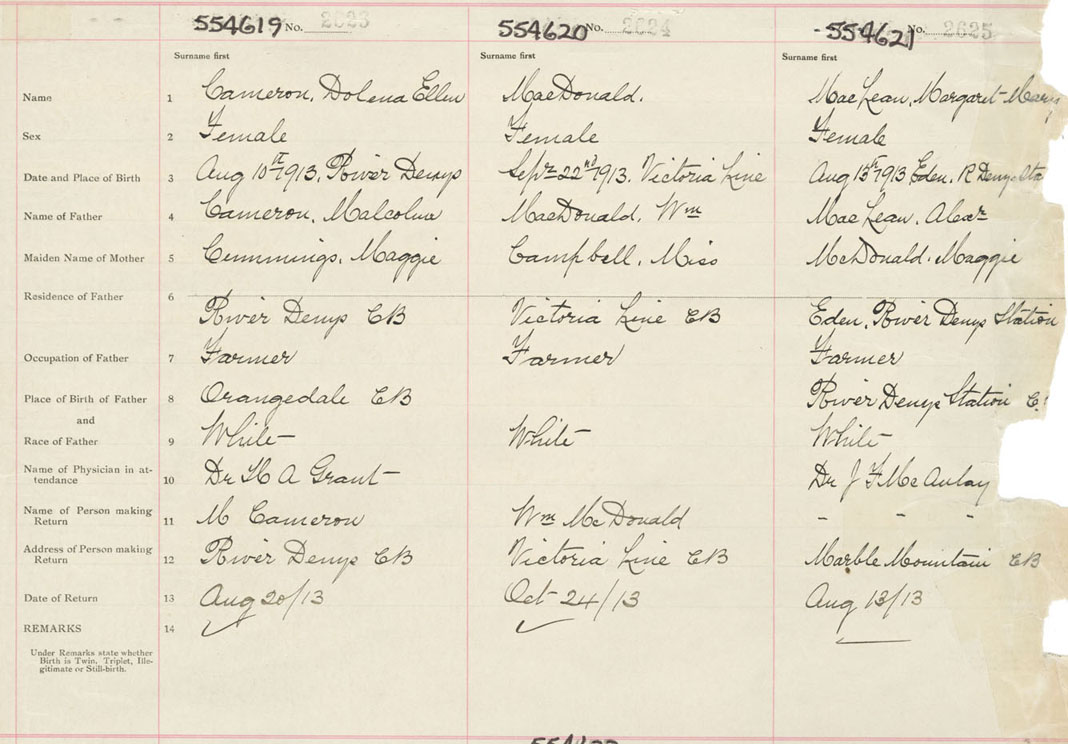 554619 No. 2623 554620 No. 2624 554621 No. 2625
Surname first Surname first Surname first
Name 1 Cameron, Dolena Ellen MacDonald. MacLean, Margaret
Sex 2 Female Female Female
Date and Place of Birth 3 Aug 10th 1913, River Denys Sepr 22nd 1913. Victoria Line Aug 13th 1913 Eden, R Denys Sta
Name of Father 4 Cameron, Malcolm MacDonald, Wm MacLean, Alexr
Maiden Name of Mother 5 Cummings, Maggie Campbell, Miss McDonald, Maggie
Residence of Father 6
River Denys CB Victoria Line CB Eden, River Denys Station
Occupation of Father 7 Farmer Farmer Farmer
Place of Birth of Father 8 Orangedale CB River Denys Station C.
and
Race of Father 9 White White White
Name of Physician in at-
tendance 10 Dr H A Grant Dr J F McAulay
Name of Person making
Return 11 M Cameron Wm McDonald - - -
Address of Person making
Return 12 River Denys CB Victoria Line CB Marble Mountain CB
Date of Return 13 Aug 20/13 Oct 24/13 Aug 13/13
REMARKS 14
Under Remarks state whether
Birth is Twin, Triplet, Ille-
gitimate or Still-birth.